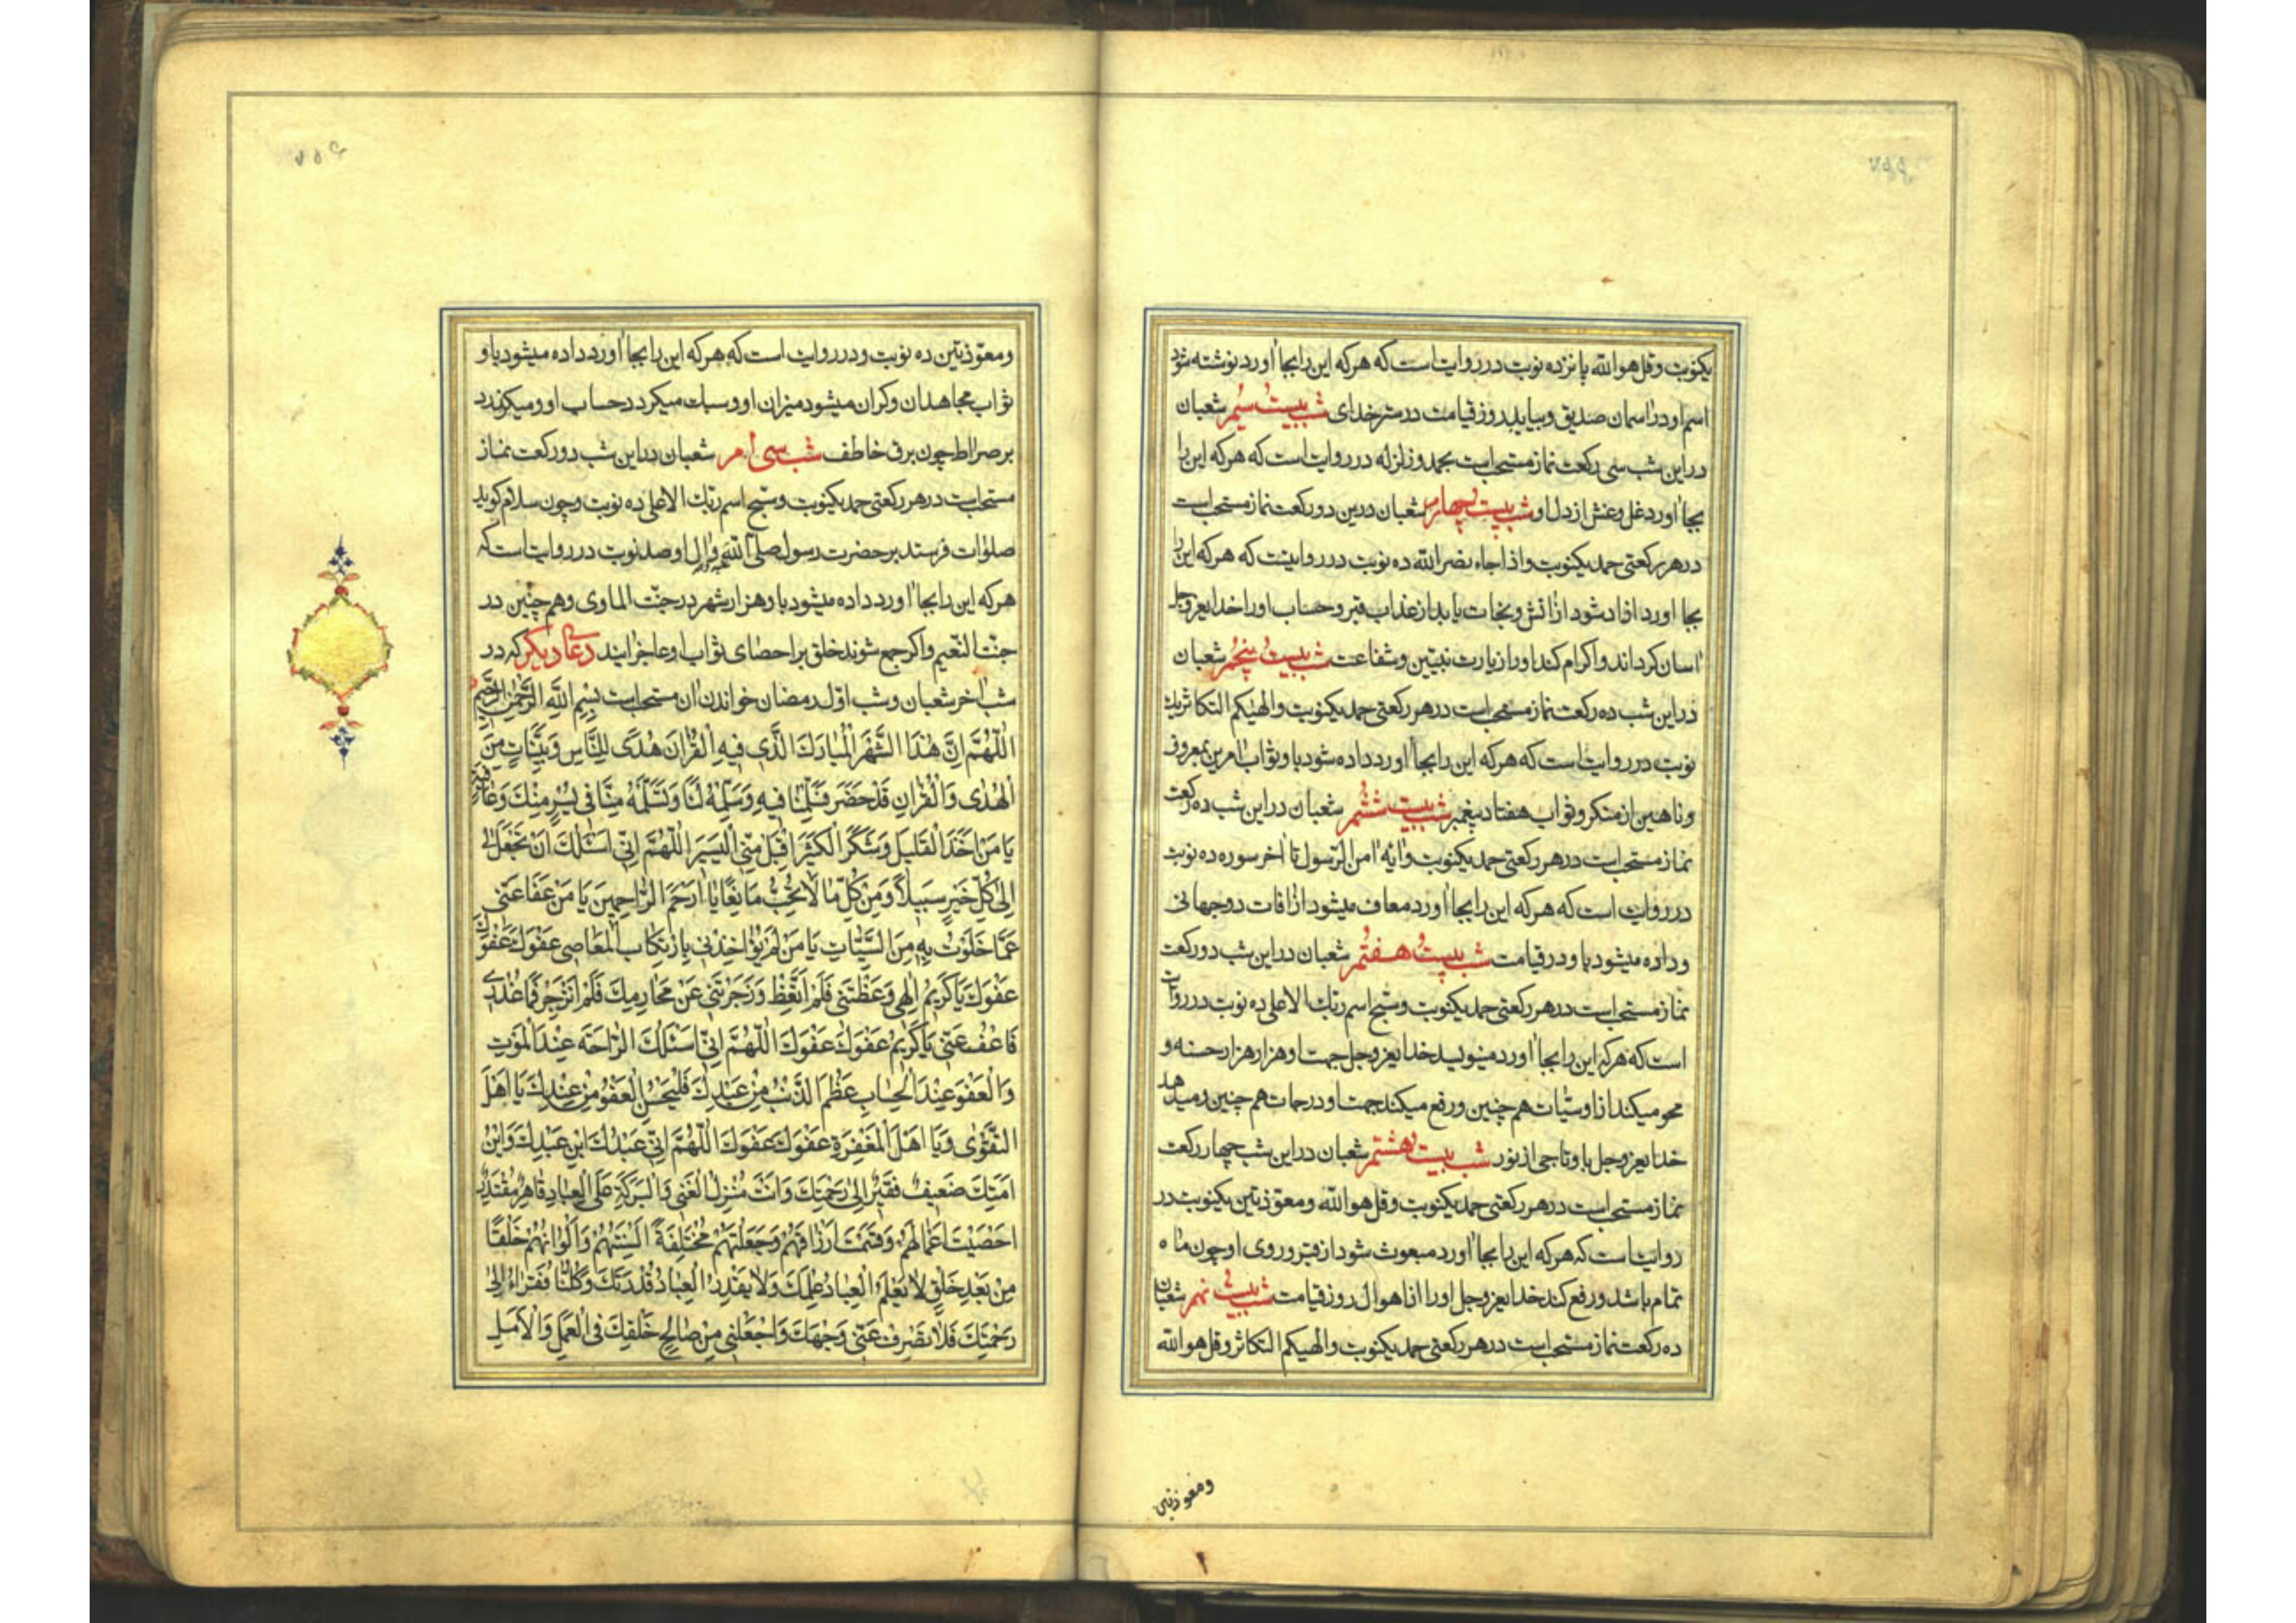 یکنوبت وقل هو الله پانزده نوبت در روایت است که هرکه این را بجا اورد نوشته شود
اسم او در اسمان صدیق وبیاید روز قیامت در ستر خدای شب بیست سیم شعبان
در این شب سی رکعت نماز مستحب است بحمد وزلزله در روایت است که هرکه این را
بجا اورد غل وغش از دل او شب بیست چهارم شعبان درین دو رکعت نماز مستحب است
در هر رکعتی حمد یکنوبت واذا جاء نصر الله ده نوبت در روایتست که هرکه این را
بجا اورد ازاد شود از اتش ونجات یابد از عذاب قبر وحساب او را خدایعزوجل
اسان کرداند واکرام کند او را زیارت نبیین وشفاعت شب بیست پنجم شعبان
در این شب ده رکعت نماز مستحب است در هر رکعتی حمد یکنوبت والهیکم التکاثر یک
نوبت در روایت است که هرکه این را بجا اورد داده شود باو ثواب امرین بمعروف
وناهین از منکر وثواب هفتاد پیغمبر شب بیست ششم شعبان در این شب ده رکعت
نماز مستحب است در هر رکعتی حمد یکنوبت وایه امن الرسول تا اخر سوره ده نوبت
در روایت است که هرکه این را بجا اورد معاف میشود از افات دوجهانی
وداده میشود باو در قیامت شب بیست هفتم شعبان در این شب دو رکعت
نماز مستحب است در هر رکعتی حمد یکنوبت وسبح اسم ربک الاعلی ده نوبت در روایت
است که هرکه این را بجا اورد مینویسد خدایعزوجل جهت او هزار هزار حسنه و
محو میکند از او سیّات هم چنین ورفع میکند جهت او درجات هم چنین ومیدهد
خدایعزوجل باو تاجی از نور شب بیست هشتم شعبان در این شب چهار رکعت
نماز مستحب است در هر رکعتی حمد یکنوبت وقل هو الله ومعوّذتین یکنوبت در
روایت است که هرکه این را بجا اورد مبعوث شود از قبر وروی او چون ماه
تمام باشد ورفع کند خدایعزوجل او را از اهوال روز قیامت شب بیست نهم شعبان
ده رکعت نماز مستحب است در هر رکعتی حمد یکنوبت والهیکم التکاثر وقل هو الله
ومعوذتین
ومعوّذتین ده نوبت ودر روایت است که هرکه این را بجا اورد داده میشود باو
ثواب مجاهدان وکران میشود میزان او وسبک میکردد حساب او ومیکذرد
بر صراط چون برق خاطف شب سی ام شعبان در این شب دو رکعت نماز
مستحب است در هر رکعتی حمد یکنوبت وسبّح اسم ربّک الاعلی ده نوبت وچون سلام کوید
صلوات فرستد بر حضرت رسول صلی الله علیه واله او صد نوبت در روایت است که
هرکه این را بجا اورد داده میشود باو هزار شهر در جنّت الماوی وهم چنین در
جنّت النّعیم واکر جمع شوند خلق بر احصای ثواب او عاجز ایند دعای دیکر که در
شب اخر شعبان وشب اوّل رمضان خواندن ان مستحب است بِسْمِ اللَّهِ الرَّحْمٰنِ الرَّحِیمِ
اَللّٰهُمَّ اِنَّ هٰذَا الشَّهْرَ الْمُبَارَكَ الَّذِی فِیهِ الْقُرْانُ هُدًی لِلنَّاسِ وَبَیِّنَاتٍ مِنَ
الْهُدٰی وَالْفُرْقَانِ قَدْ حَضَرَ فَسَلِّمْنَا فِیهِ وَسَلِّمْهُ لَنَا وَتَسَلَّمْهُ مِنَّا فِی یُسْرٍ مِنْكَ وَعَافِیَةٍ
یَا مَنْ اَخَذَ الْقَلِیلَ وَشَكَرَ الْكَثِیرَ اِقْبَلْ مِنِّی الْیَسِیرَ اَللّٰهُمَّ اِنِّی اَسْئَلُكَ اَنْ تَجْعَلَ لِی
اِلٰی كُلِّ خَیْرٍ سَبِیلًا وَمِنْ كُلِّ مَا لَا تُحِبُّ مَانِعًا یَا اَرْحَمَ الرَّاحِمِینَ یَا مَنْ عَفَا عَنِّی
عَمَّا خَلَوْتُ بِهِ مِنَ السَّیِّئَاتِ یَا مَنْ لَمْ یُؤَاخِذْنِی بِارْتِكَابِ الْمَعَاصِی عَفْوَكَ عَفْوَكَ
عَفْوَكَ یَا كَرِیمُ اِلٰهِی وَعَظْتَنِی فَلَمْ اَتَّعِظْ وَزَجَرْتَنِی عَنْ مَحَارِمِكَ فَلَمْ اَنْزَجِرْ فَمَا عُذْرِی
فَاعْفُ عَنِّی یَا كَرِیمُ عَفْوَكَ عَفْوَكَ اَللّٰهُمَّ اِنِّی اَسْئَلُكَ الرَّاحَةَ عِنْدَ الْمَوْتِ
وَالْعَفْوَ عِنْدَ الْحِسَابِ عَظُمَ الذَّنْبُ مِنْ عَبْدِكَ فَلْیَحْسُنِ الْعَفْوُ مِنْ عِنْدِكَ یَا اَهْلَ
التَّقْوٰی وَیَا اَهْلَ الْمَغْفِرَةِ عَفْوَكَ عَفْوَكَ اَللّٰهُمَّ اِنِّی عَبْدُكَ ابْنُ عَبْدِكَ وَابْنُ
اَمَتِكَ ضَعِیفٌ فَقِیرٌ اِلٰی رَحْمَتِكَ وَاَنْتَ مُنْزِلُ الْغِنٰی وَالْبَرَكَةِ عَلَی الْعِبَادِ قَاهِرٌ مُقْتَدِرٌ
اَحْصَیْتَ اَعْمَالَهُمْ وَقَسَمْتَ اَرْزَاقَهُمْ وَجَعَلْتَهُمْ مُخْتَلِفَةً اَلْسِنَتُهُمْ وَاَلْوَانُهُمْ خَلْقًا
مِنْ بَعْدِ خَلْقٍ لَا یَعْلَمُ الْعِبَادُ عِلْمَكَ وَلَا یَقْدِرُ الْعِبَادُ قُدْرَتَكَ وَكُلُّنَا فُقَرَاءُ اِلٰی
رَحْمَتِكَ فَلَا تَصْرِفْ عَنِّی وَجْهَكَ وَاجْعَلْنِی مِنْ صَالِحِ خَلْقِكَ فِی الْعَمَلِ وَالْاَمَلِ